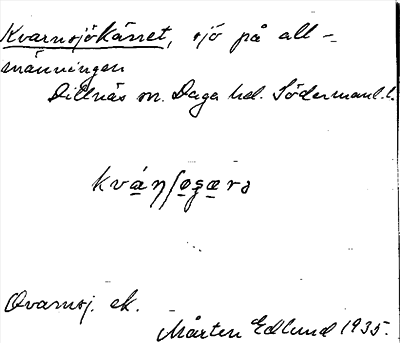 Kvarnsjökärret, sjö på all-
männingen
Dillnäs sn. Daga hd. Södermanl. l.
kvánʃǫgæra
Qvarnsj. ek.
Mårten Edlund 1935.